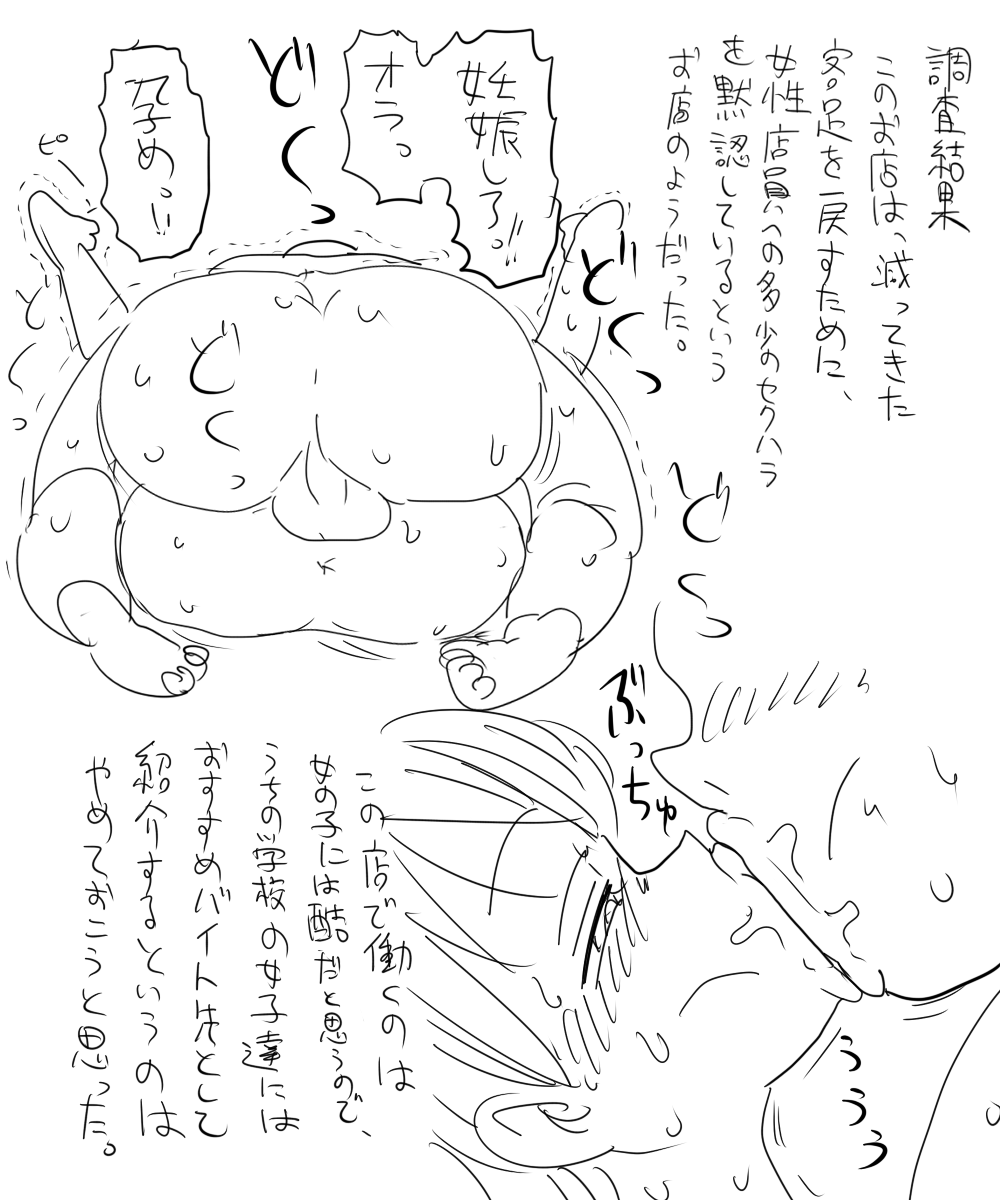 調査結果
このお店は、減ってきた
客足を戻すために、
女性店員への多少のセクハラ
を黙認しているという
お店のようだった。
妊娠しろっ!!
オラっ
ど
く
っ
孕めっ!!
ピーン
ど
く
っ
ど
く
っ
ど
く
っ
ど
く
っ
ぶっちゅ
ううう
この店で働くのは
女の子には酷だと思うので、
うちの学校の女子達には
おすすめバイト先として
紹介するというのは
やめておこうと思った。